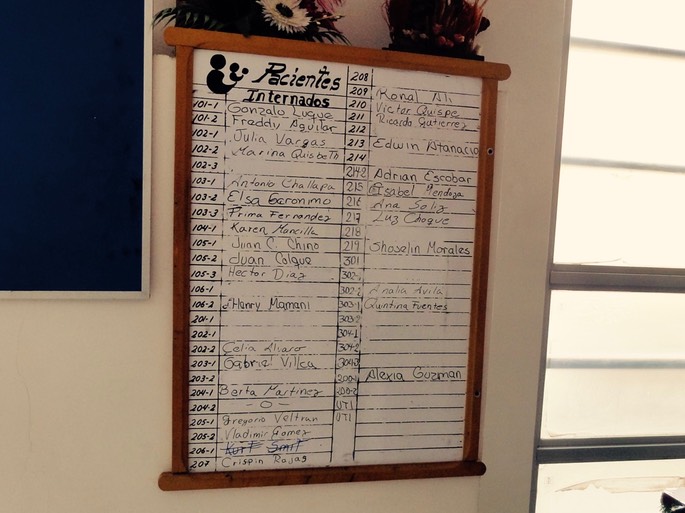 Pacientes
Internados
101-1 Gonzalo Luque
101-2 Freddy Aguilar
102-1 Julia Vargas
102-2 Marina Quisbeth
102-3
103-1 Antonio Challapa
103-2 Elsa Geronimo
103-3 Prima Fernandez
104-1 Karen Mancilla
105-1 Juan C. Chino
105-2 Juan Colque
105-3 Hector Diaz
106-1
106-2 Henry Mamani
201-1
202-1
202-2 Celia Alvaro
203-1 Gabriel Villca
203-2
204-1 Berta Martinez
204-2 — O —
205-1 Gregorio Veltran
205-2 Vladimir Gomez
206-1 Kurt Smit
207 Crispin Rojas
208
209 Ronal Ali
210 Victor Quispe
211 Ricardo Gutierrez
212
213 Edwin Atanacio
214
214-2 Adrian Escobar
215 Isabel Mendoza
216 Ana Soliz
217 Luz Choque
218
219 Shoselin Morales
301
302-1
302-2 Analia Avila
303-1 Quintina Fuentes
303-2
304-1
304-2
Alexia Guzman
UTI
UTI